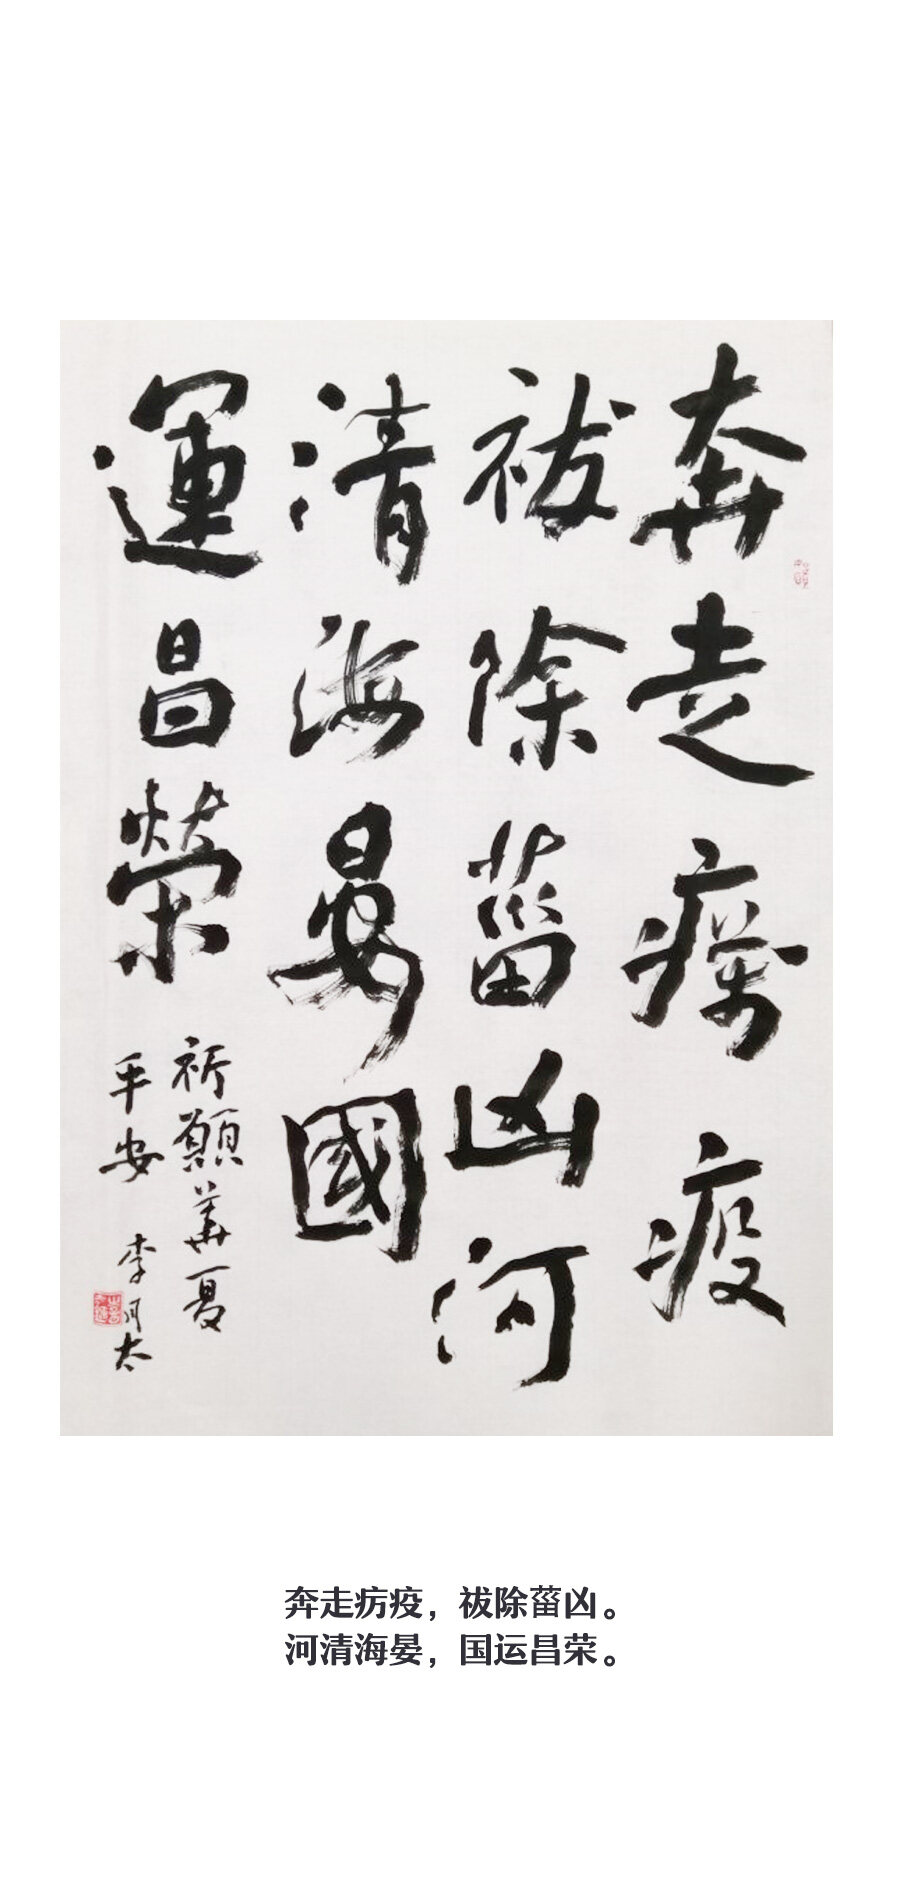 奔走癘疫
祓除菑凶河
清海晏國
運昌榮
祈願華夏
平安 李月太
奔走疠疫，祓除菑凶。
河清海晏，国运昌荣。